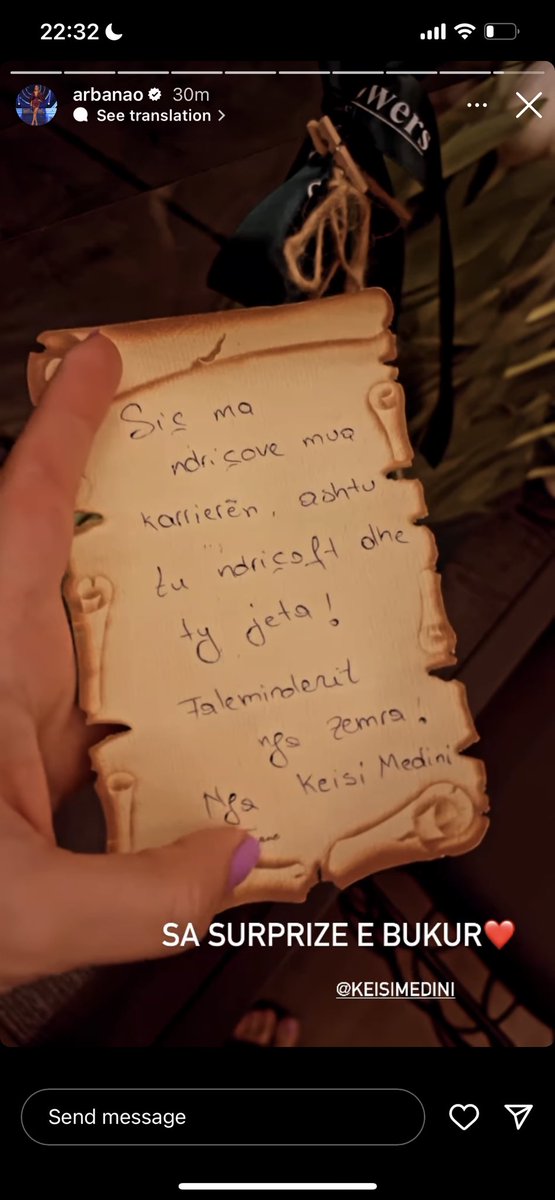 22:32
arbanao 30m
See translation >
wers
Siç ma
ndriçove mua
karrierën, ashtu
tu ndriçoft dhe
ty jeta!
Faleminderit
nga zemra!
Nga Keisi Medini
SA SURPRIZE E BUKUR❤️
@KEISIMEDINI
Send message